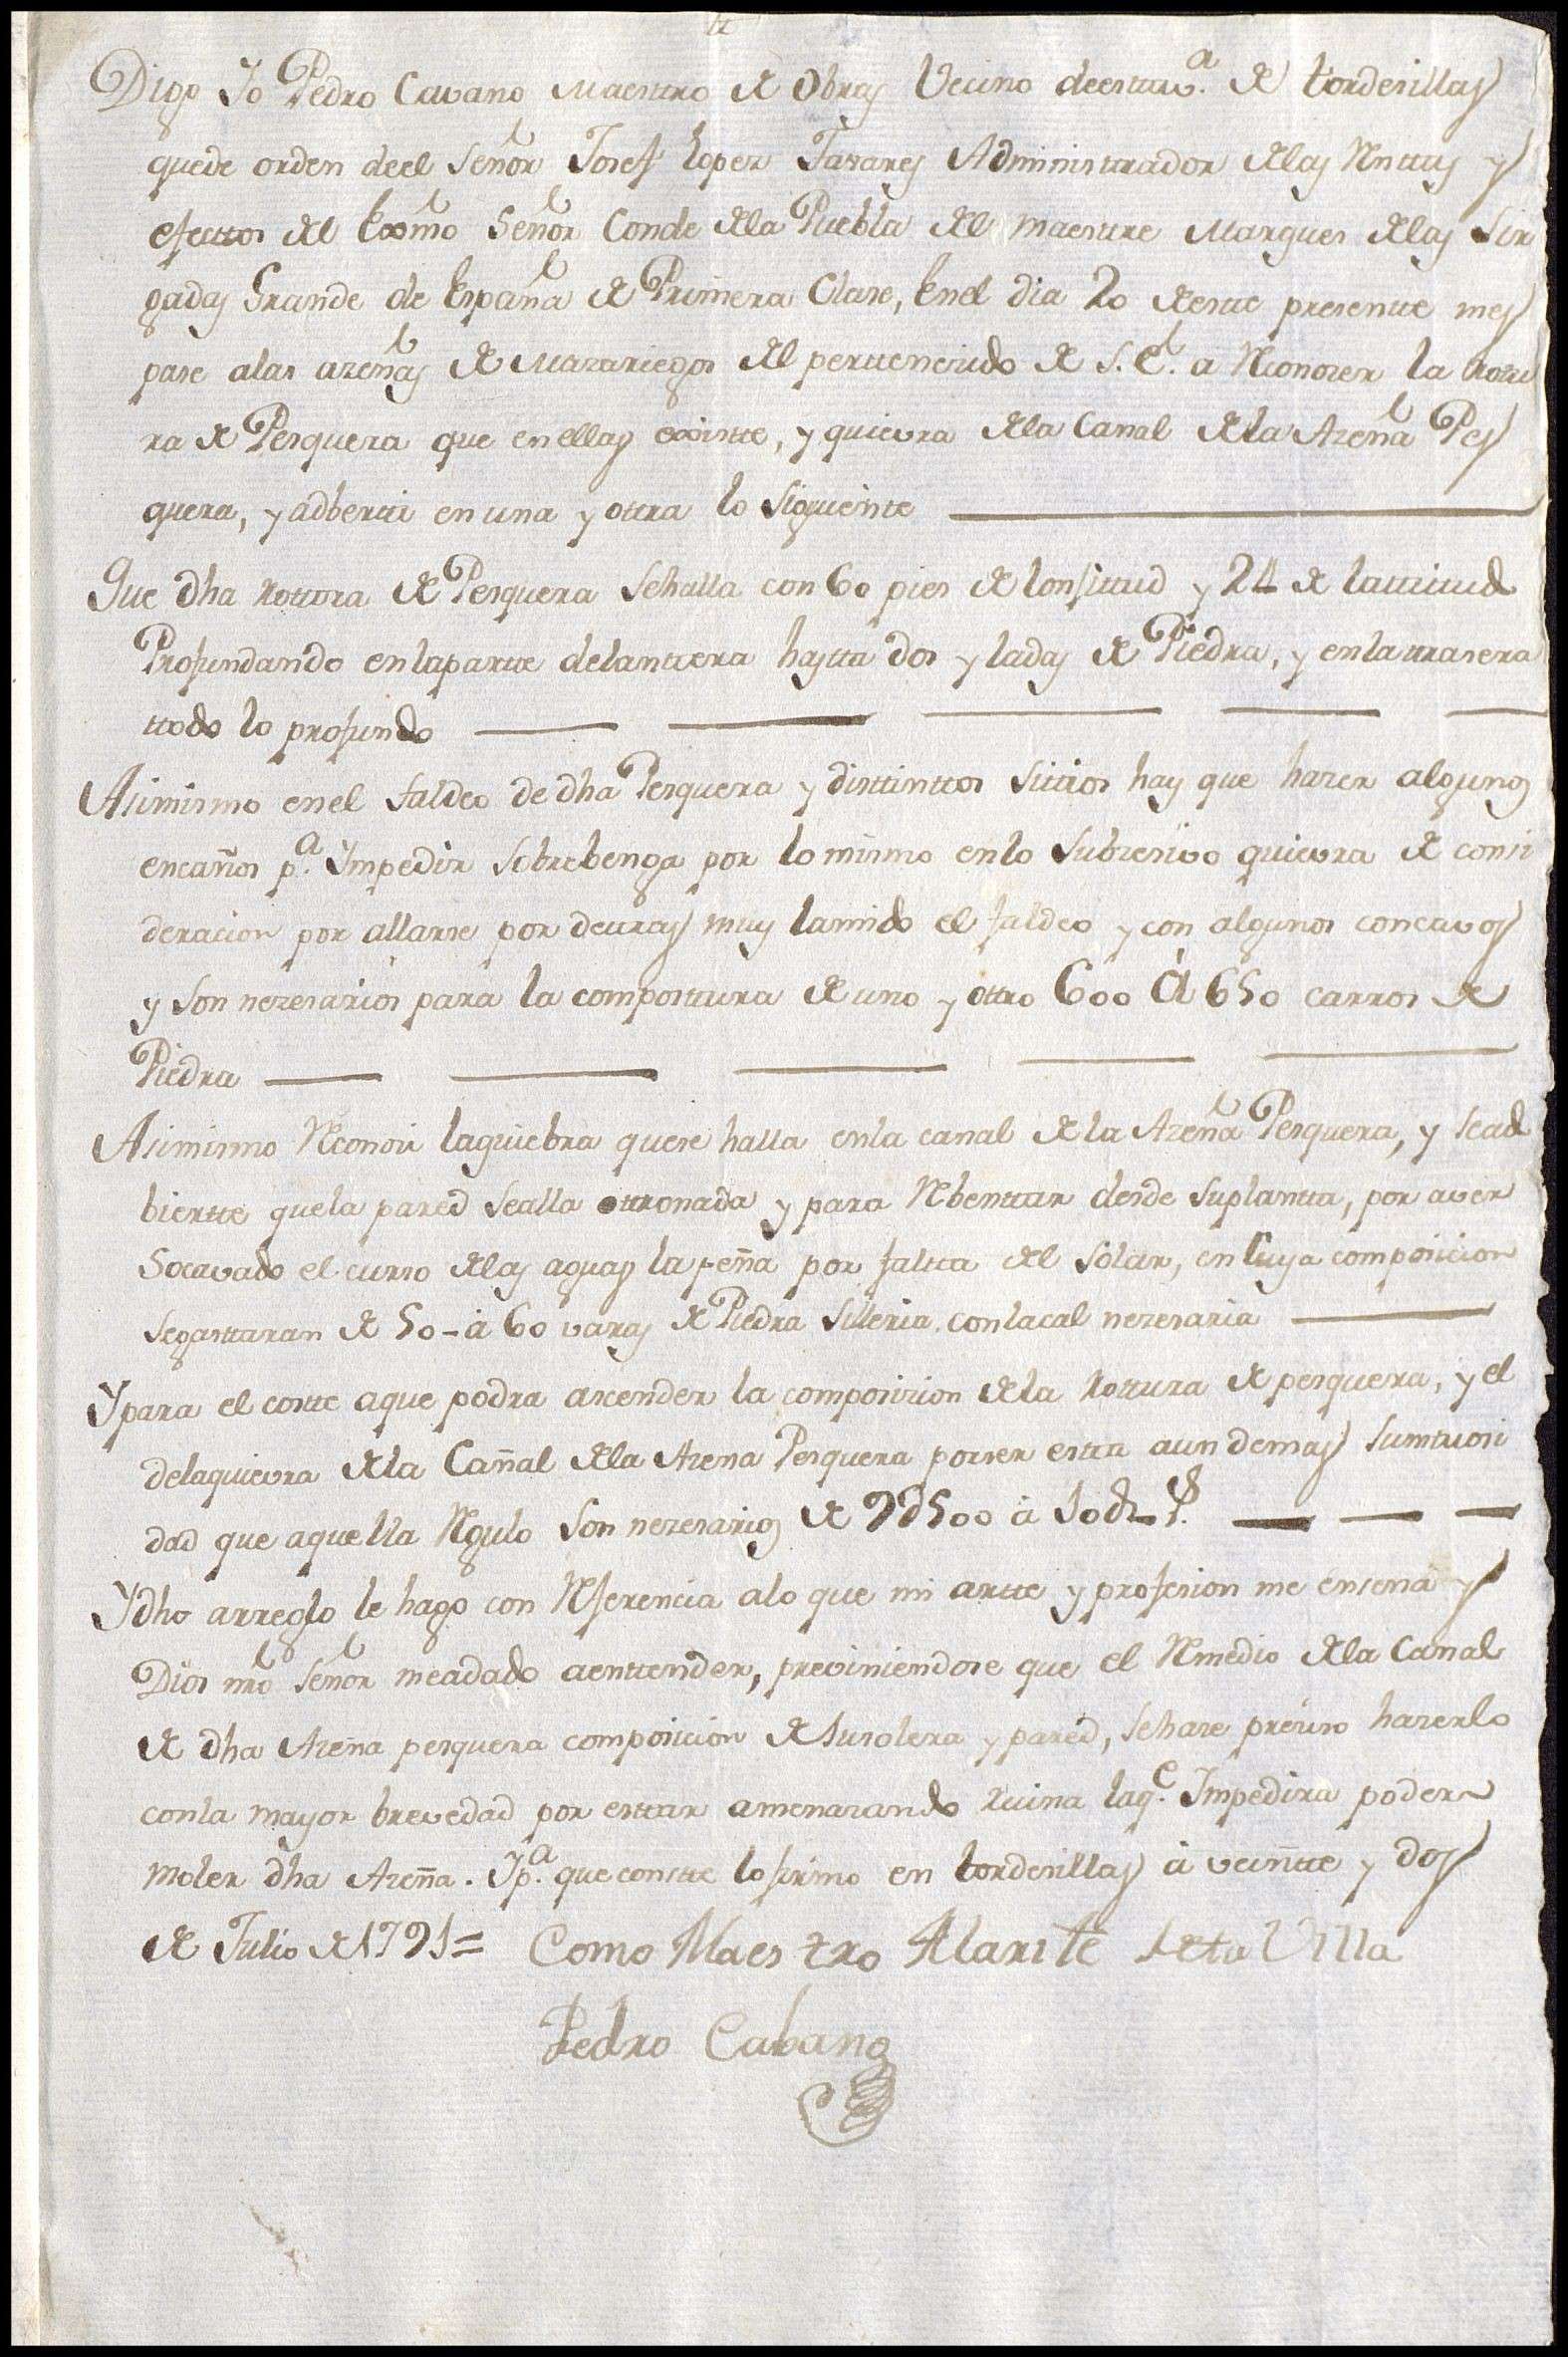 Digo Io Pedro Cavano Maesttro de Obras Vecino deesttav.ª de tordesillas
quede orden deel Señor Josef Lopez Tavares Administtrador delas Renttas y
efecttos del Exmo Señor Conde dela Puebla del maesttre Marques delas Sir
gadas Grande de España de Primera Clase, Enel dia 20 deestte presentte mes
pase alas azeñas de Mazariegos del perttenezido de S.E. a Reconozer la Rottu
ra de Pesquera que enellas existte, y quievra dela Canal dela Azeña Pes
quera, y adbertti en una y ottra lo siguiente
Que dha Rottora de Pesquera sehalla con 60 pies de lonjitud y 24 de lattitud
Profundando enlapartte delanttera hastta dos yladas de Piedra, y enlattrasera
ttodo lo profundo
Asimismo enel faldeo de dha Pesquera y disttinttos sittios hay que hazer algunos
encaños p.ª Impedir sobrebenga por lo mismo enlo subzesivo quievra de consi
deracion por allarse por dettras muy lamido el faldeo y con algunos concavos
y son nezesarios para la composttura de uno y ottro 600 à 650 carros de
Piedra
Asimismo Reconozi laquiebra quese halla enla canal dela Azeña Pesquera, y sead
biertte quela pared sealla attronada y para Rebenttar desde suplantta, por aver
socavado el curso delas aguas la peña por faltta del solar, en Cuya composicion
segasttaran de 50 - à 60 varas de Piedra silleria conlacal nezesaria
Ypara el costte aque podra ascender la composizion dela Rottura de pesquera, y el
delaquievra dela Cañal dela Azena Pesquera porser estta aun demas sumtuosi
dad que aquella Regulo son nezesarios de 9d500 à 10d R.s
Ydho arreglo le hago con Referencia alo que mi artte y profesion me enseña y
Dios nro señor meadado aenttender, previniendose que el Remedio dela Canal
de dha Azeña pesquera composicion desusolera y pared, sehaze preziso hazerlo
conla mayor brevedad por esttar amenazando Ruina laq.e Impedira poder
moler dha Azeña. Yp.ª que constte lofirmo en tordesillas à veintte y dos
de Julio de 1791 = Como Maestro Alarife desta Villa
Pedro Cabano